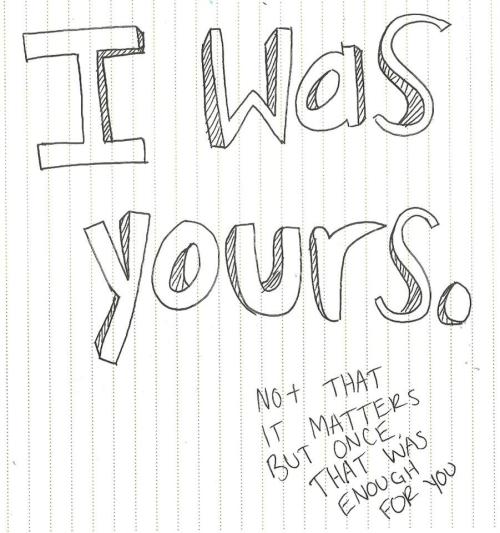 I was
yours.
NOt THAT
IT MATTERS
BUT ONCE,
THAT WAS
ENOUGH
FOR YOU